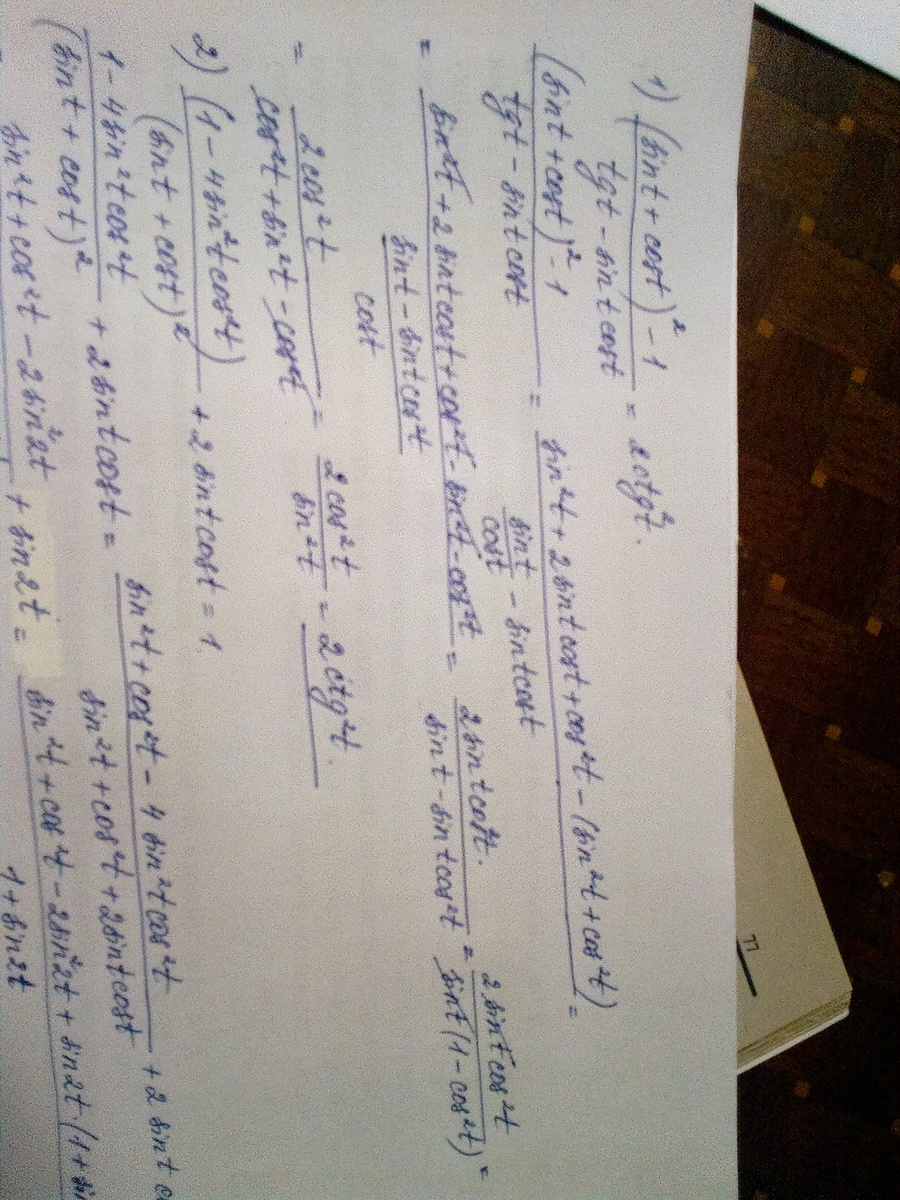 1) (sint + cost)² - 1 / tgt - sint cost = 2ctg²t.
(sint + cost)² - 1 / tgt - sint cost = sin²t + 2sintcost + cos²t - (sin²t + cos²t) / sint/cost - sintcost =
= sin²t + 2sintcost + cos²t - sin²t - cos²t / sint - sintcos²t / cost = 2sintcos²t. / sint - sintcos²t = 2sintcos²t / sint(1 - cos²t) =
= 2cos²t / cos²t + sin²t - cos²t = 2cos²t / sin²t = 2ctg²t.
2) (1 - 4sin²tcos²t) / (sint + cost)² + 2sintcost = 1.
1 - 4sin²tcos²t / (sint + cost)² + 2sintcost = sin²t + cos²t - 4sin²tcos²t / sin²t + cos²t + 2sintcost + 2sint
sin²t + cos²t - 2sin²2t + sin2t = sin²t + cos²t - 2sin²2t + sin2t · (1 + / 1 + sin2t
77